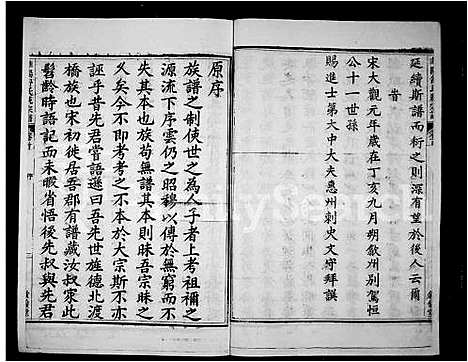 延續斯譜而衍之則深有望於後人云爾
旹
宋大觀元年歲在丁亥九月朔歙州別駕恒
公十一世孫
賜進士第大中大夫惠州刺史文守拜譔
原序
族譜之制使世之為人子者上考祖禰之
源流下序雲仍之昭穆以傳於無窮而不
失其本也族苟無譜其本則昧吾宗昧之
久矣今不即考考之不本於大宗斯不亦
誣乎昔先君嘗語遜曰吾先世旌德北渡
橋族也宋初徙居吾郡有譜藏汝叔家此
髫齡時語記而未暇省悟後先叔與先君
序